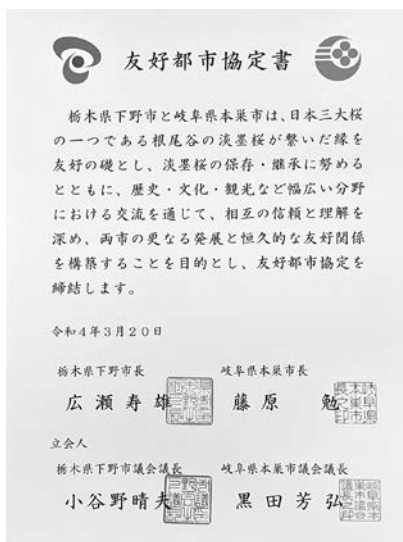 友好都市協定書
栃木県下野市と岐阜県本巣市は、日本三大桜
の一つである根尾谷の淡墨桜が繋いだ縁を
友好の礎とし、淡墨桜の保存・継承に努める
とともに、歴史・文化・観光など幅広い分野
における交流を通じて、相互の信頼と理解を
深め、両市の更なる発展と恒久的な友好関係
を構築することを目的とし、友好都市協定を
締結します。
令和4年3月20日
栃木県下野市長 岐阜県本巣市長
広瀬寿雄 藤原 勉
立会人
栃木県下野市議会議長 岐阜県本巣市議会議長
小谷野晴夫 黒田芳弘